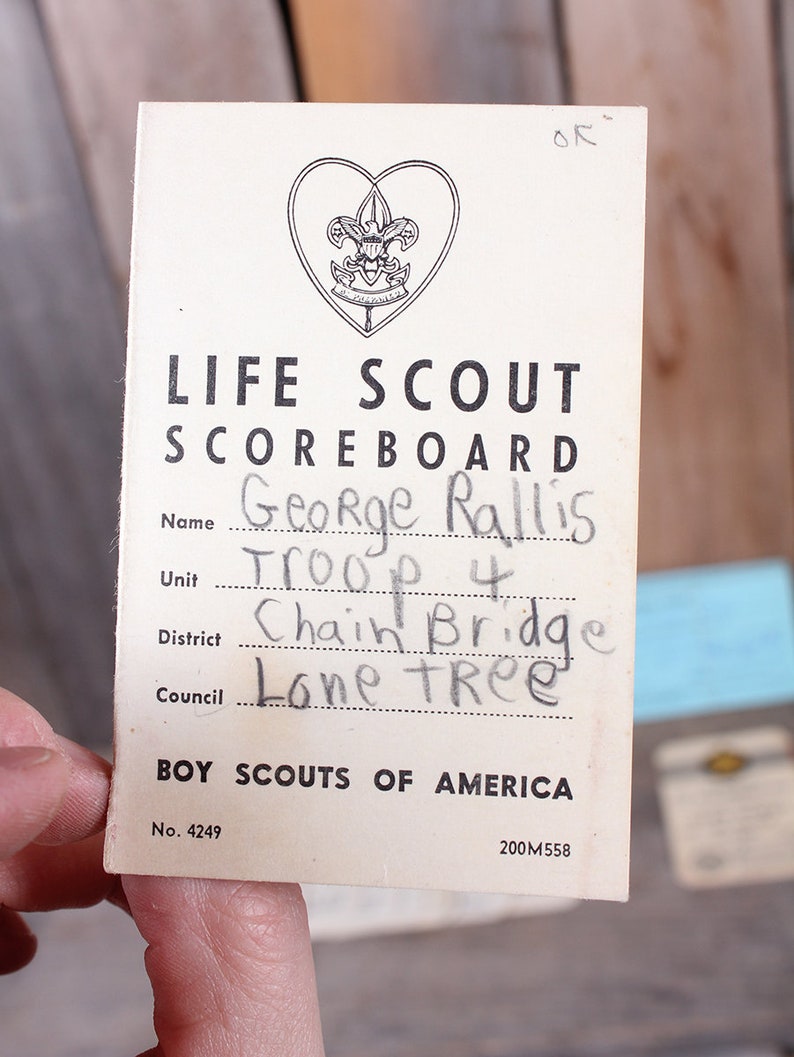 OK
BE PREPARED
LIFE SCOUT
SCOREBOARD
Name George Rallis
Unit Troop 4
District Chain Bridge
Council Lone TREE
BOY SCOUTS OF AMERICA
No. 4249
200M558